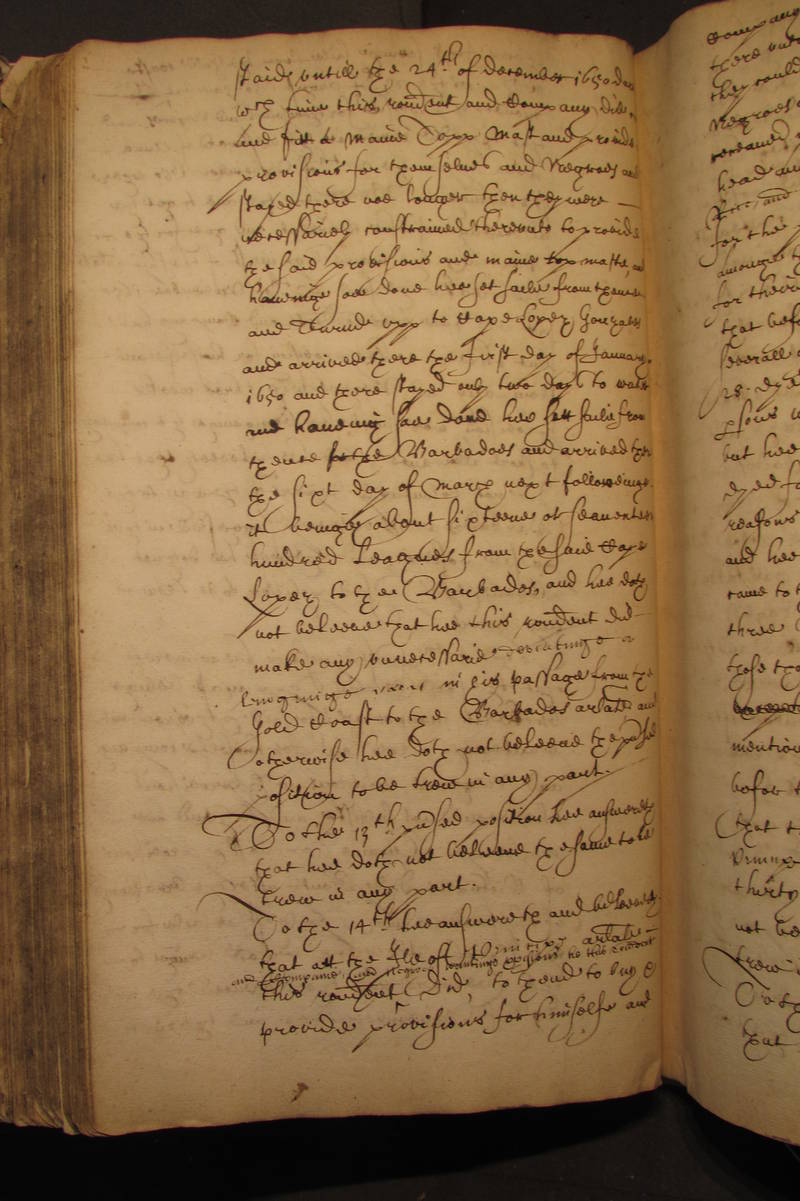 staid untill the 24th of december 1650 du
wch time this rendent and Company did
and fitt a maine Topp Mast and provide
provisions for themselves and Negroes and
stayed there noe longer then they were
necessarily constrained thereunto to provide
the said provisions and maine topp maste, and
haveinge soe done hee set saile from thence
and Turnde upp to Cape Lopez Gonzales
and arrived there the first day of January
1650 and there stayed only two days to water
and haveing soe done hee sett saile from
thence for the Barbadoes and arrived there
the sixt day of March next followeinge.
it beinge about sixteene or seaventeen
hundred Leagues from the said Cape
Lopez to the Barbados, and hee doth
not beleeve that hee this rendent did
make any unnecessarie deviatinge or
in his passage from the
Gold Coast to the Barbados arlate and
otherwise hee doth not beleeve the prsed
position to be trew in any part.
To the 13th prsed position hee answereth
that hee doth not beleeve the same to be
trew in any part.
To the 14th hee answereth and beleeveth
that att the Ile of arlate
and Companie and Negroes wantinge provisions he this rendent
this rendent did, to theend to buy &
provide provisions for himselfe and
Company
there
they could
Negroes
received
head
and
for the
amonge
for their
that bef
severall
28. dye
psons
but hee
dyed fo
reasons
and hee
came to t
three
those tho
mention
befor t
that t
thirty
not be
trew
To th
that